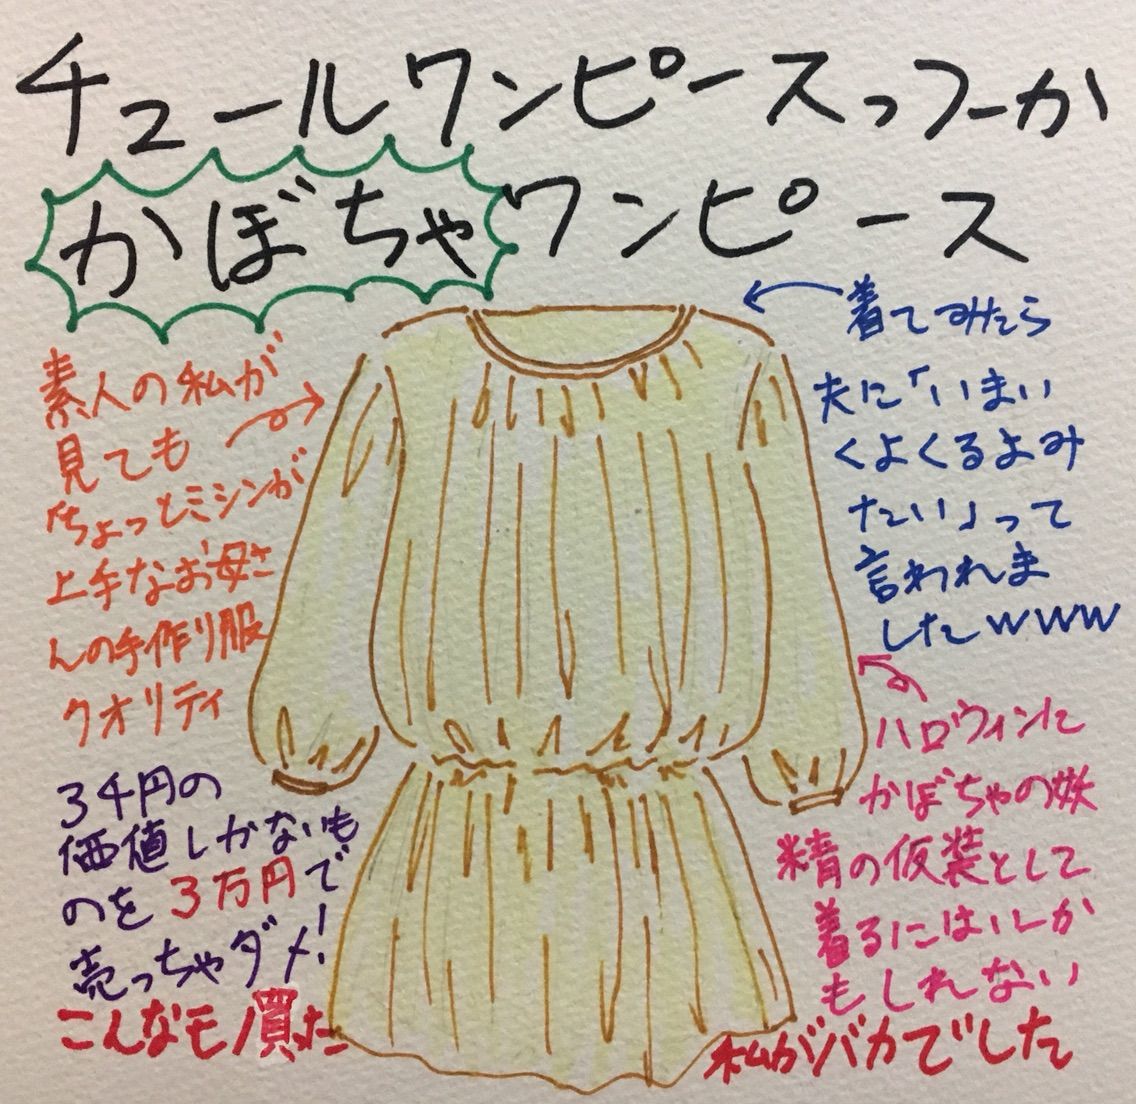 チュールワンピースっつーか
かぼちゃワンピース
素人の私が
見ても
「ちょっとミシンが
上手なお母さ
んの手作り服
クオリティ
3千円の
価値しかないも
のを3万円で
売っちゃダメ!
こんなモノ買った
着てみたら
夫に「いまい
くよくるよみ
たい」って
言われま
したwww
ハロウィンに
かぼちゃの妖
精の仮装として
着るにはいいか
もしれない
私がバカでした